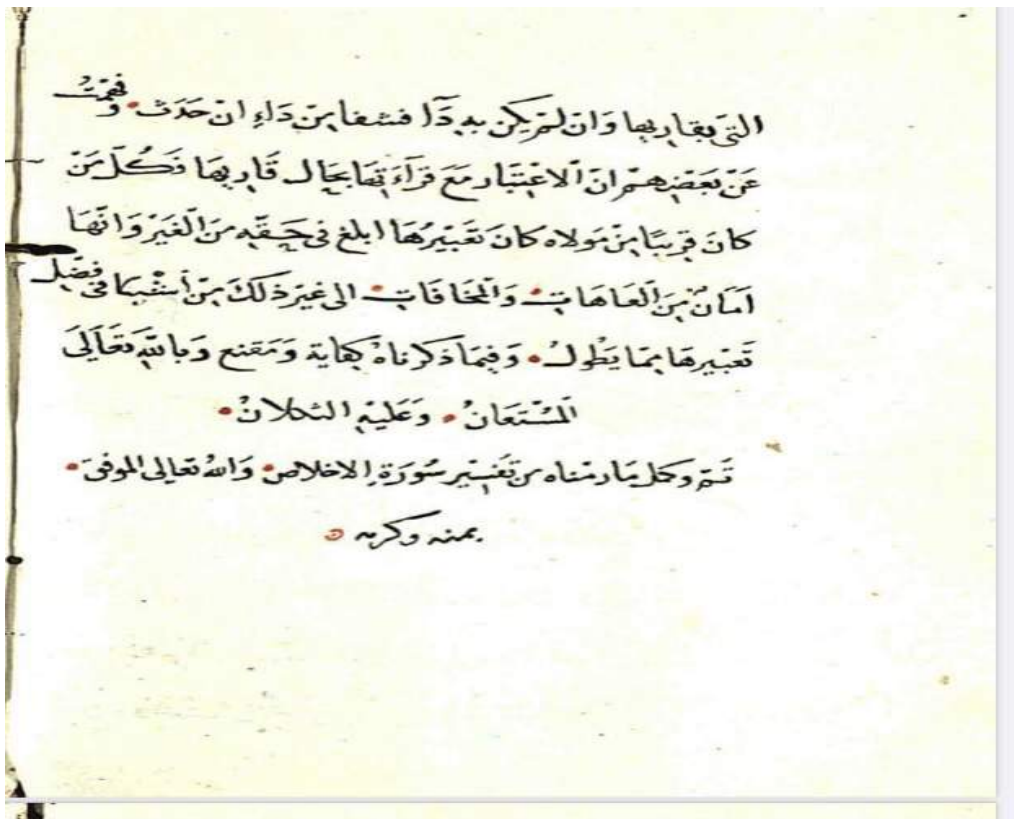 التي بقاريها وان لم يكن به دآ فشفا من داء ان حدث • وفهمت
عن بعضهم ان الاعتبار مع قرآءتها بحال قاريها فكل من
كان قريبًا من مولاه كان تعبيرها ابلغ في حقه من الغير وانها
امان من العاهات • والمخافات • الى غير ذلك من أشيا في فضل
تعبيرها مما يطول • وفيما ذكرناه كفاية ومقنع وبالله تعالى
المستعان • وعليه التكلان •
تم وكمل ما رمناه من تفسير سورة الاخلاص • والله تعالى الموفق •
بمنه وكرمه